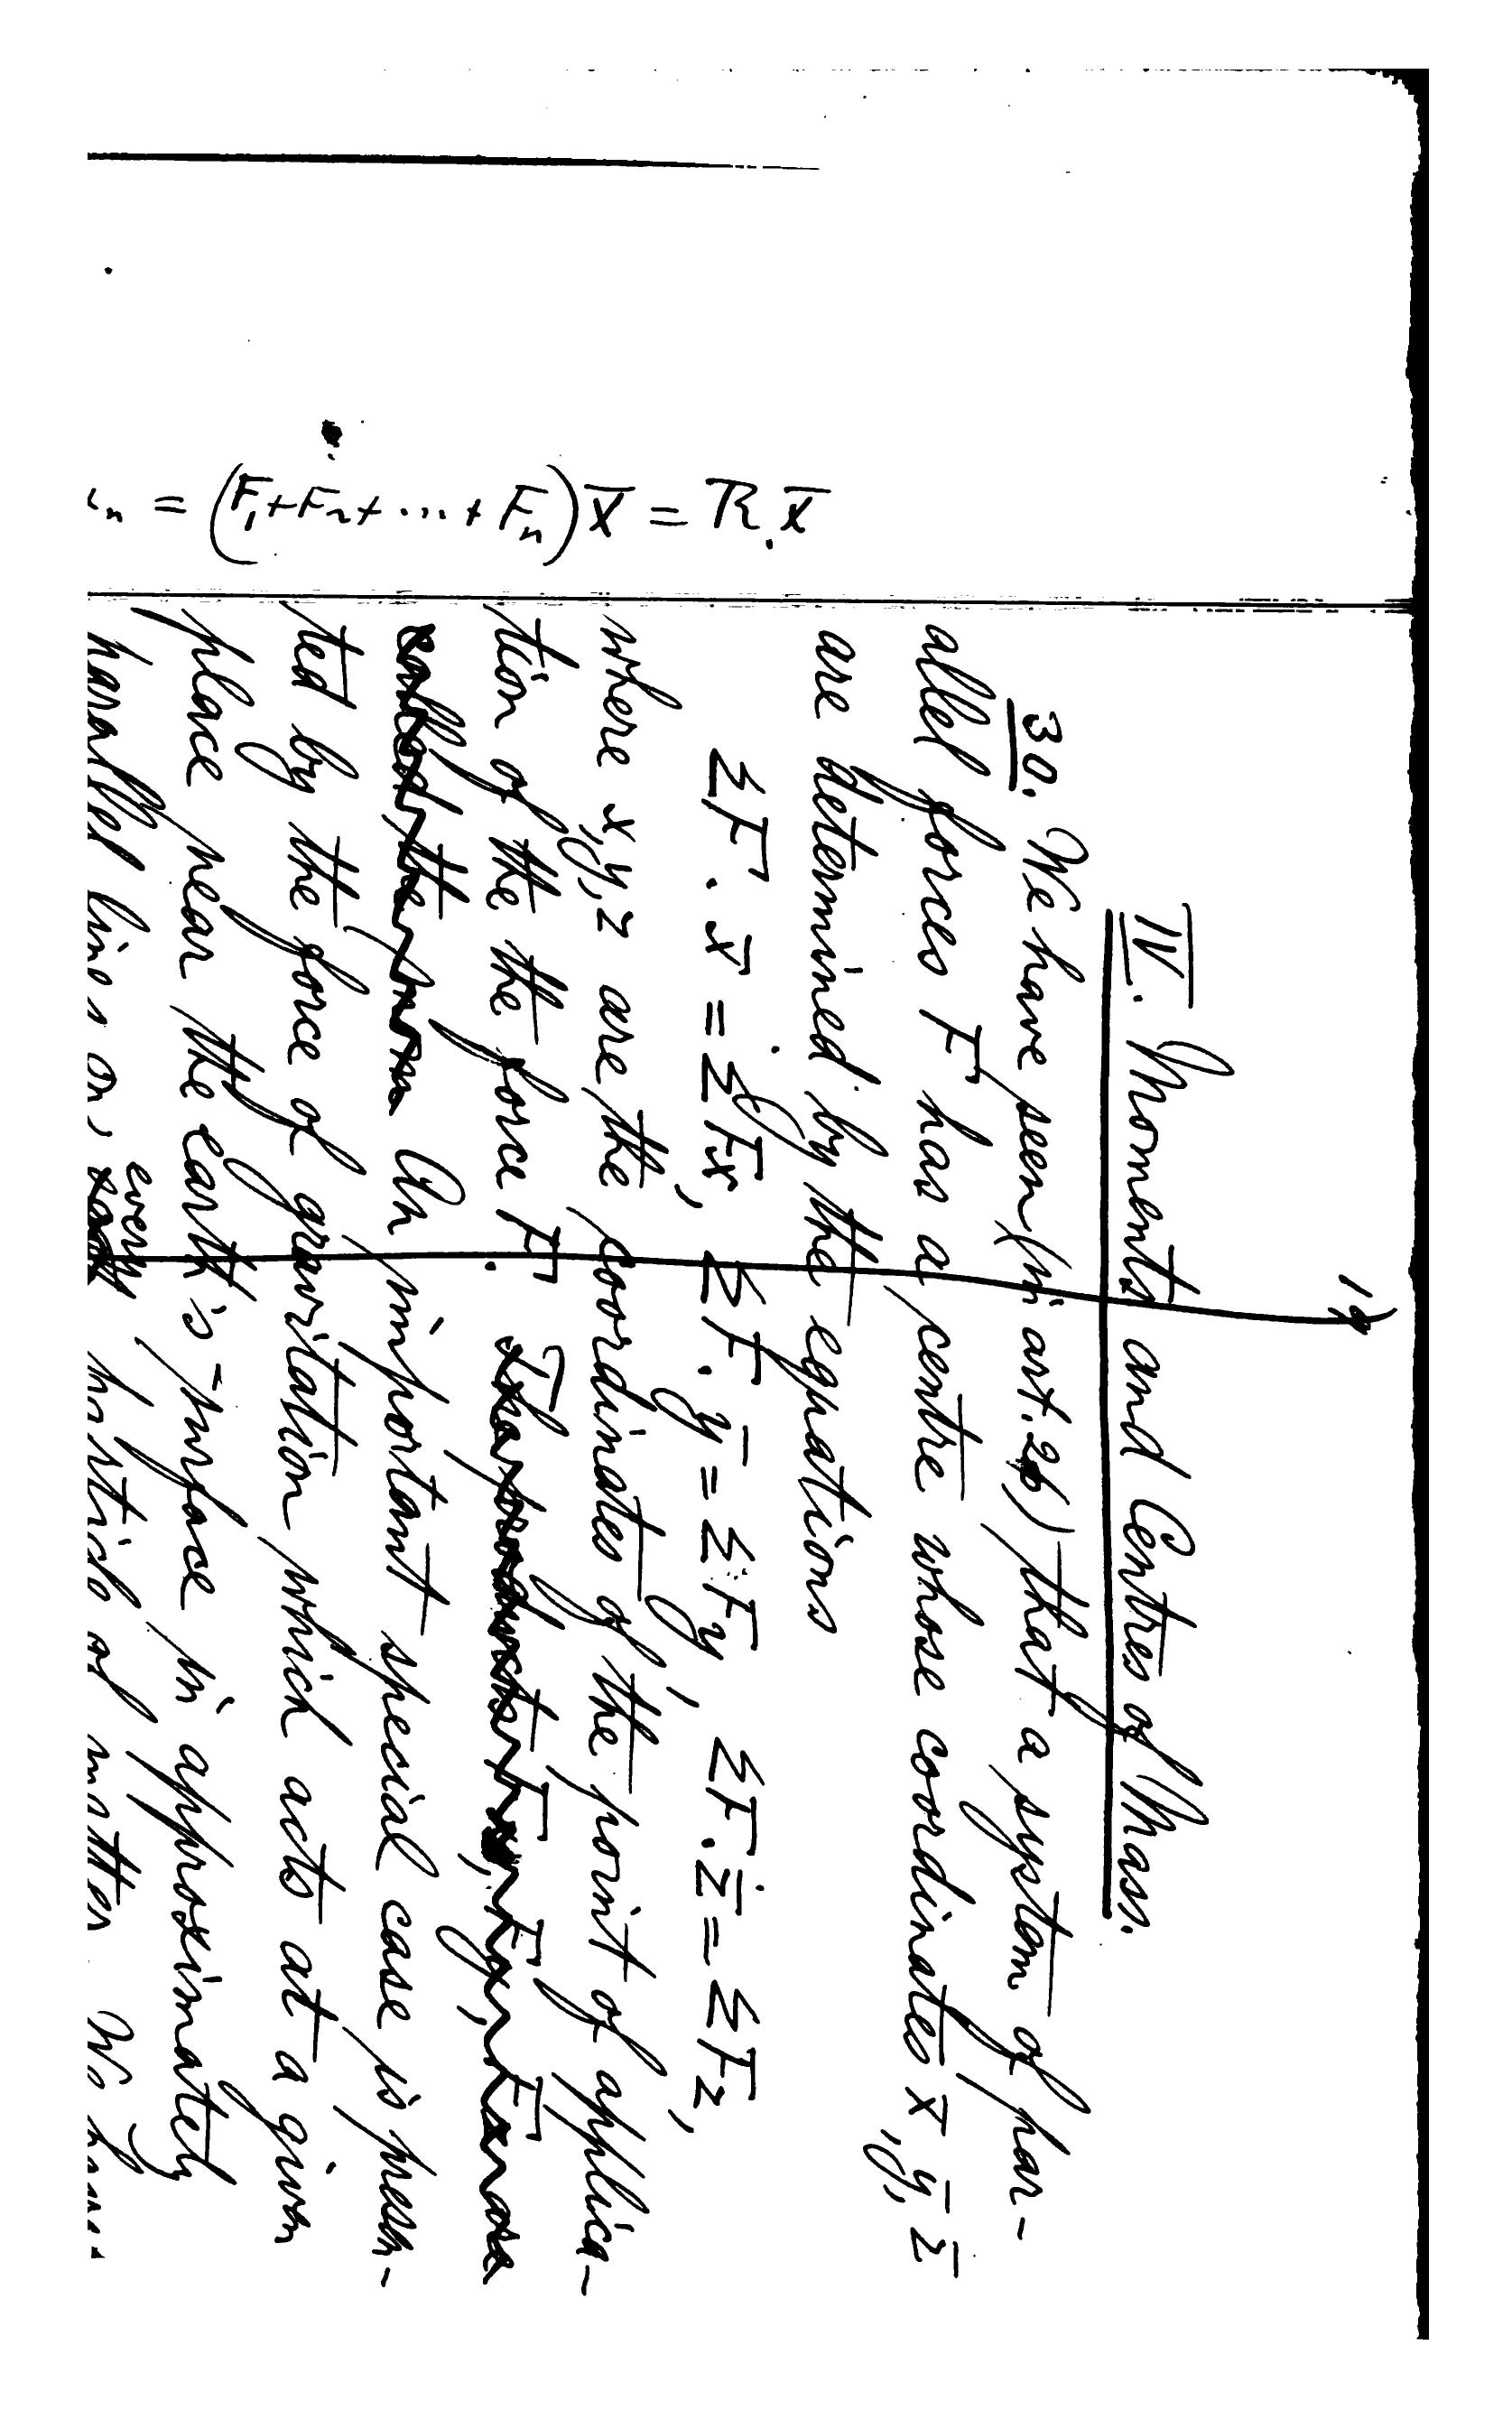 19
IV. Moments and Centres of Mass.
30. We have seen (in art. 26) that a system of par-
allel forces F has a centre whose coordinates x̄, ȳ, z̄
are determined by the equations
ΣF . x̄ = ΣFx, ΣF. ȳ = ΣFy, ΣF. z̄ = ΣFz,
where x, y, z are the coordinates of the point of applica-
tion of the force F. The products Fx, Fy, Fz are
called the An important special case is presen-
ted by the force of gravitation which acts at a given
place near the earth's surface in approximately
parallel lines on every particle of matter
= (F₁+F₂+...+Fₙ)x̄ = R.x̄